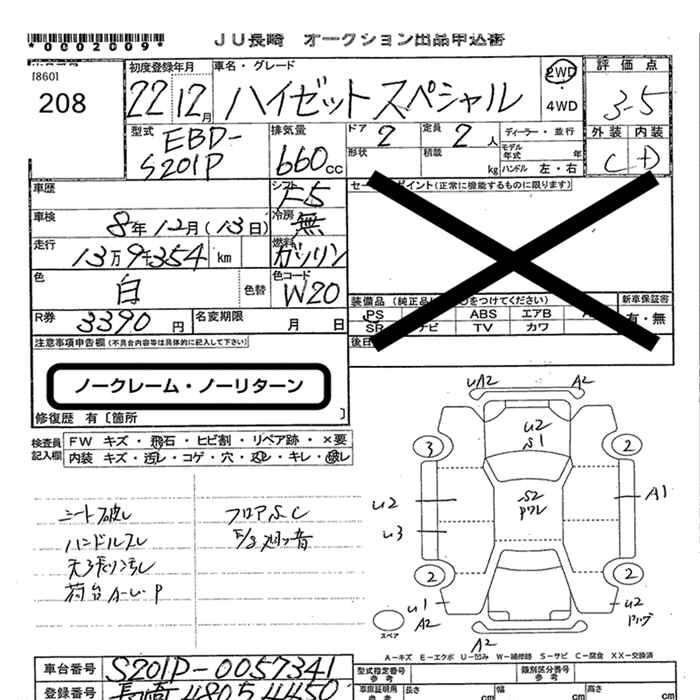 *0002009*
JU長崎 オークション出品申込書
[860]
208
初度登録年月
22 12月
車名・グレード
ハイゼットスペシャル
2WD
4WD
評価点
3.5
型式
EBD-
S201P
排気量
660cc
ドア 2
定員 2人
ディーラー・並行
形状
積載 kg
モデル年式 年
ハンドル 左・右
外装 内装
C D
車歴
シフト F5
車検 8年12月(13日)
冷房 無
走行 13万9千354 km
燃料 ガソリン
色 白
色替
色コード W20
R券 3390円
名変期限 月 日
(正常に機能するものに限ります)
新車保証書
PS ABS エアB
SR TV カワ
有・無
注意事項申告欄(不具合内容等は具体的に記入して下さい)
ノークレーム・ノーリターン
修復歴 有〔箇所 〕
検査員記入欄
FW キズ・飛石・ヒビ割・リペア跡・×要
内装 キズ・汚レ・コゲ・穴・スレ・キレ・破レ
シート破レ
フロアS.C
天張リ汚レ
荷台A-U-P
UA2 A2
U2
S1
3 2
S2
U2
U3
A1
2 2
U1
A2
U2
A2
スペア
A-キズ E-エクボ U-凹み W-補修跡 S-サビ C-腐食 XX-交換済
車台番号 S201P-0057341
登録番号 長崎 480 5 4450
型式指定番号
参考
類別区分番号
参考
車庫証明用
参考
長さ cm
幅 cm
高さ cm